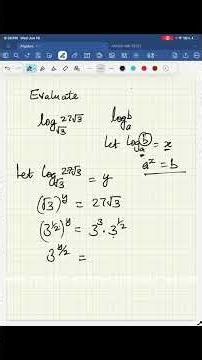 Evaluate
log_√3 27√3    log_a b
let log_a b = x
a^x = b
Let log_√3 27√3 = y
(√3)^y = 27√3
(3^1/2)^y = 3^3 · 3^1/2
3^y/2 =